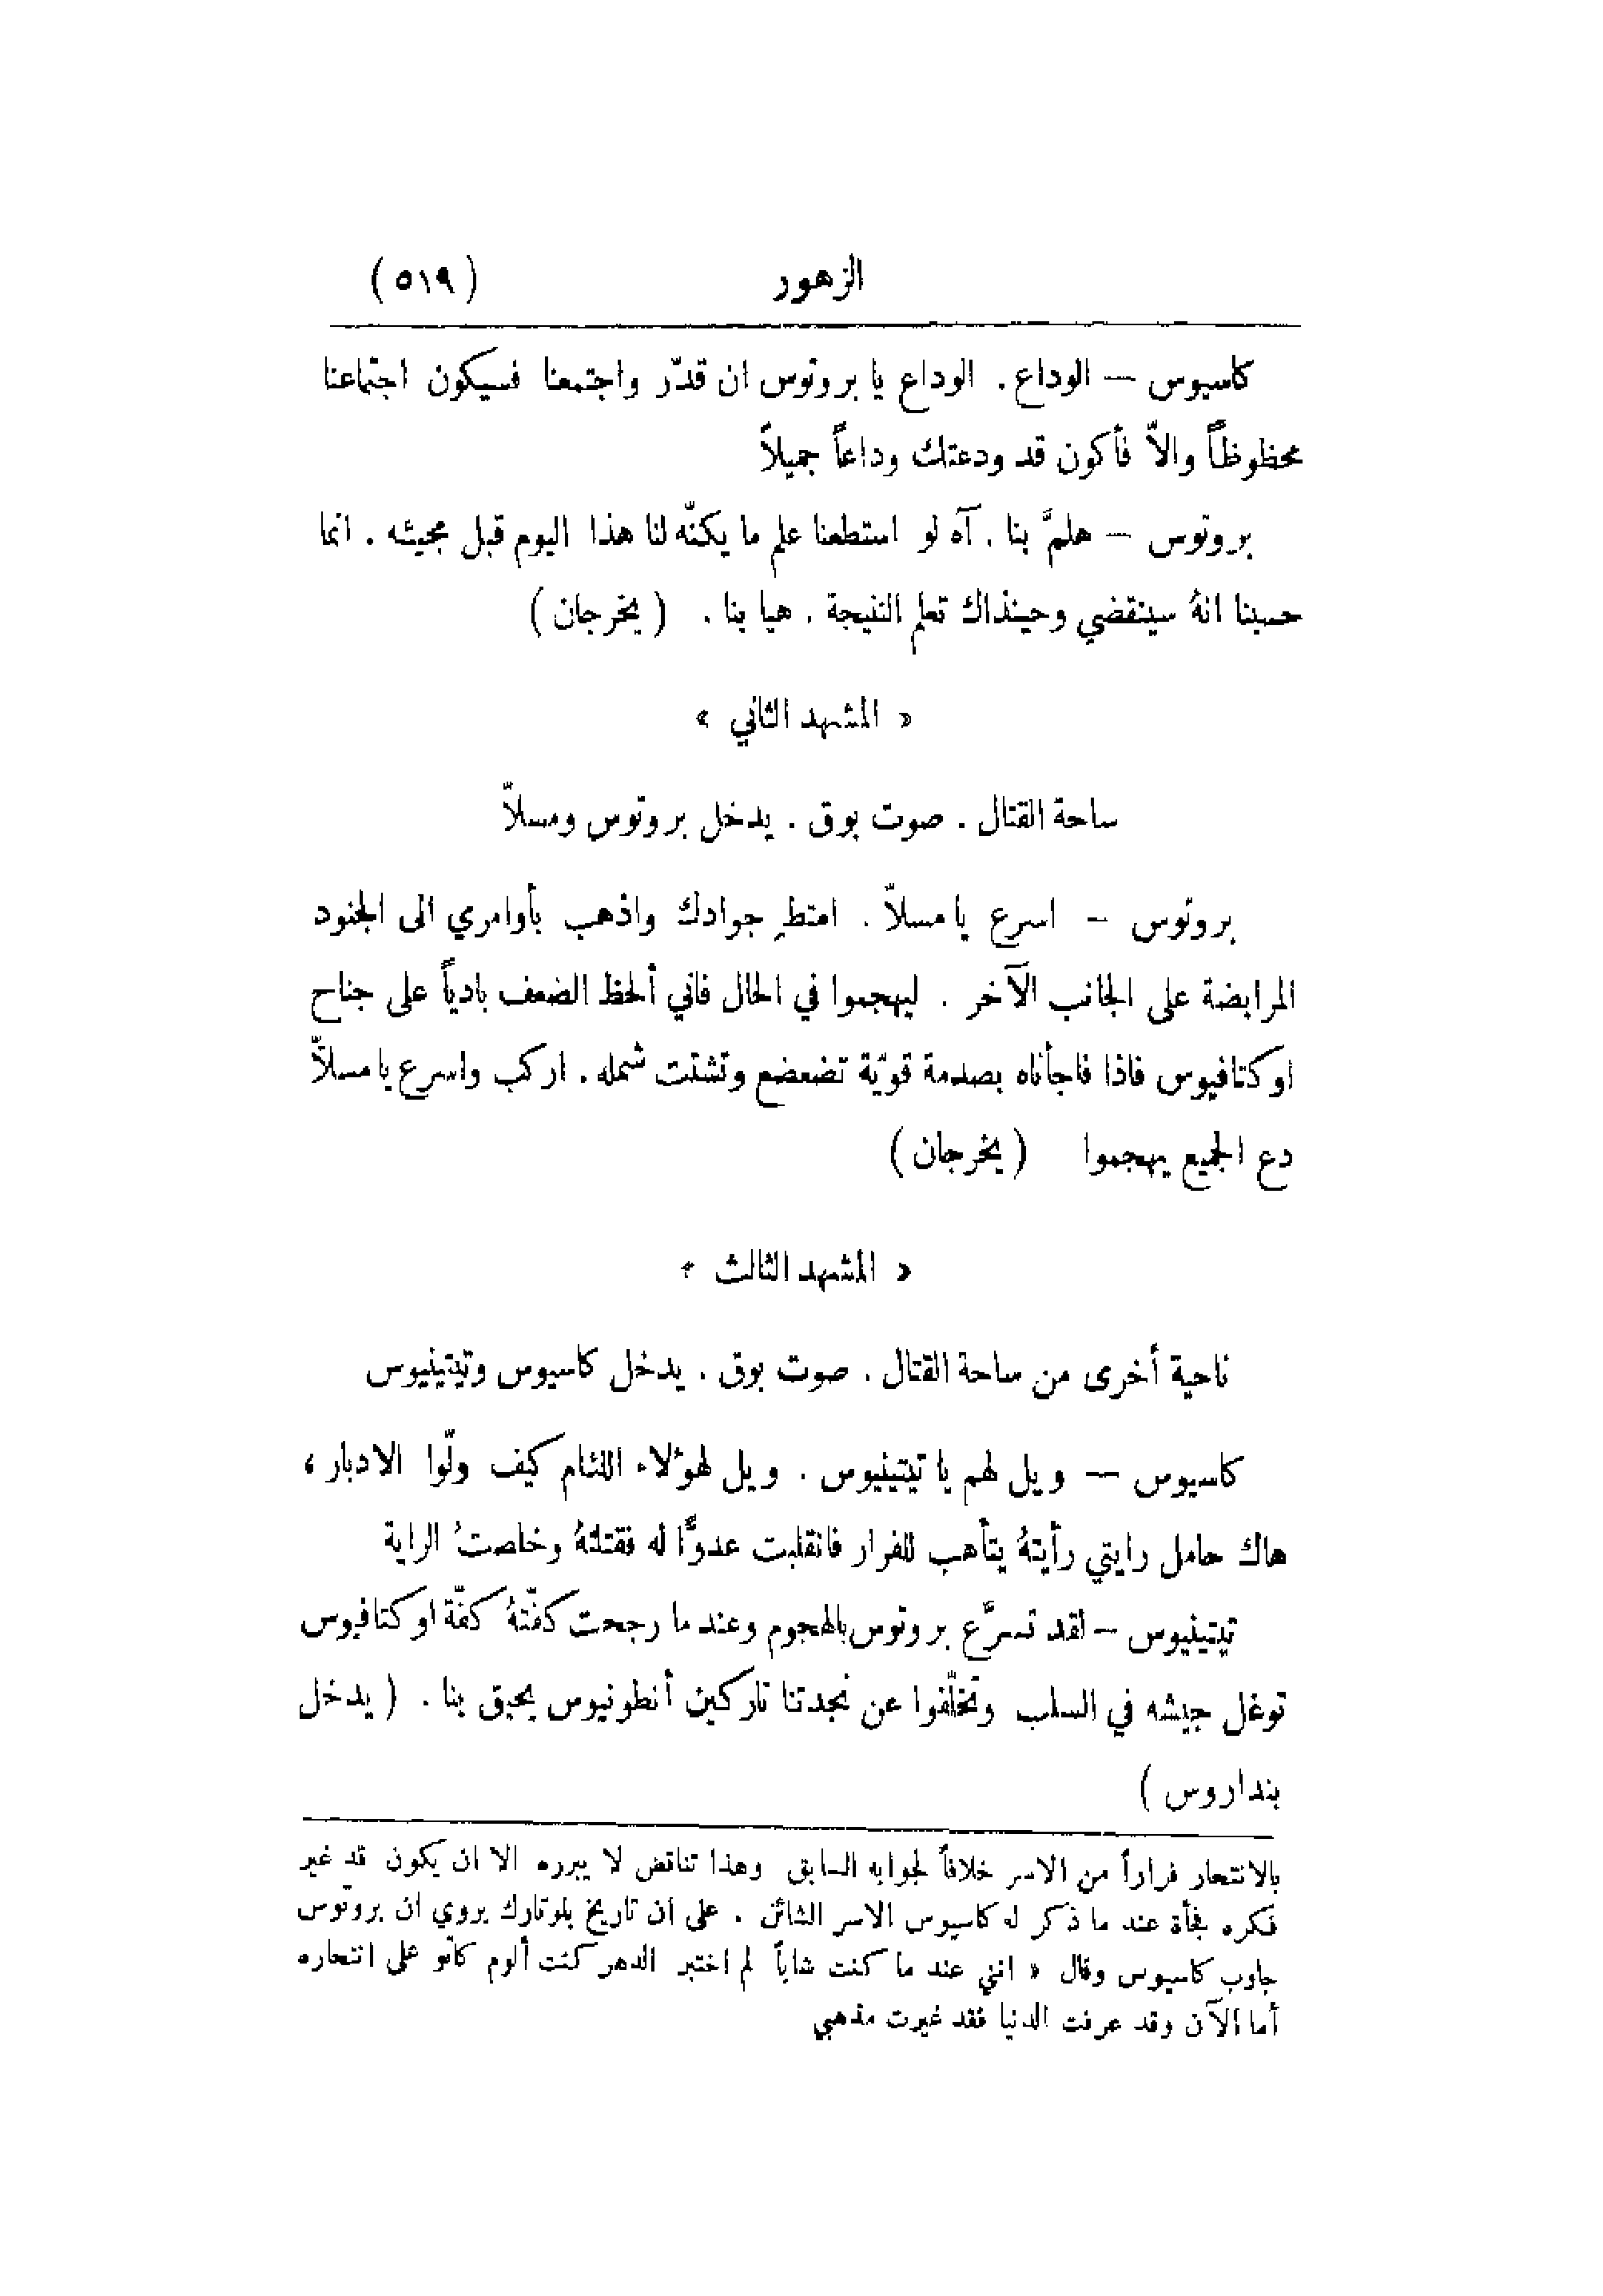 الزهور (٥١٩)
كاسيوس — الوداع . الوداع يا بروتوس ان قدّر واجتمعنا فسيكون اجتماعنا
محظوظاً والاّ فأكون قد ودعتك وداعاً جميلاً
بروتوس — هلمَّ بنا . آه لو استطعنا علم ما يكنّه لنا هذا اليوم قبل مجيئه . انما
حسبنا انهُ سينقضي وحينذاك تعلم النتيجة . هيا بنا . ( يخرجان )
« المشهد الثاني »
ساحة القتال . صوت بوق . يدخل بروتوس ومسلاّ
بروتوس – اسرع يا مسلاّ . امتطِ جوادك واذهب بأوامري الى الجنود
المرابضة على الجانب الآخر . ليهجموا في الحال فاني ألحظ الضعف بادياً على جناح
اوكتافيوس فاذا فاجأناه بصدمة قويّة تضعضع وتشتت شمله . اركب واسرع يا مسلاّ
دع الجميع يهجموا ( يخرجان )
« المشهد الثالث »
ناحية أخرى من ساحة القتال . صوت بوق . يدخل كاسيوس وتيتينيوس
كاسيوس — ويل لهم يا تيتينيوس . ويل لهؤلاء اللئام كيف ولّوا الادبار ،
هاك حامل رايتي رأيتهُ يتأهب للفرار فانقلبت عدوًّا له فقتلتهُ وخلصتُ الراية
تيتينيوس – لقد تسرَّع بروتوس بالهجوم وعند ما رجحت كفّتهُ كفّة اوكتافيوس
توغل جيشه في السلب وتخلّفوا عن نجدتنا تاركين أنطونيوس يحيق بنا . ( يدخل
بنداروس )
بالانتحار فراراً من الاسر خلافاً لجوابه السابق وهذا تناقض لا يبرره الا ان يكون قد غير
فكره فجأة عند ما ذكر له كاسيوس الاسر الشائن . على ان تاريخ بلوتارك يروي ان بروتوس
جاوب كاسيوس وقال « انني عند ما كنت شاباً لم اختبر الدهر كنت ألوم كاتو على انتحاره
أما الآن وقد عرفت الدنيا فقد غيرت مذهبي